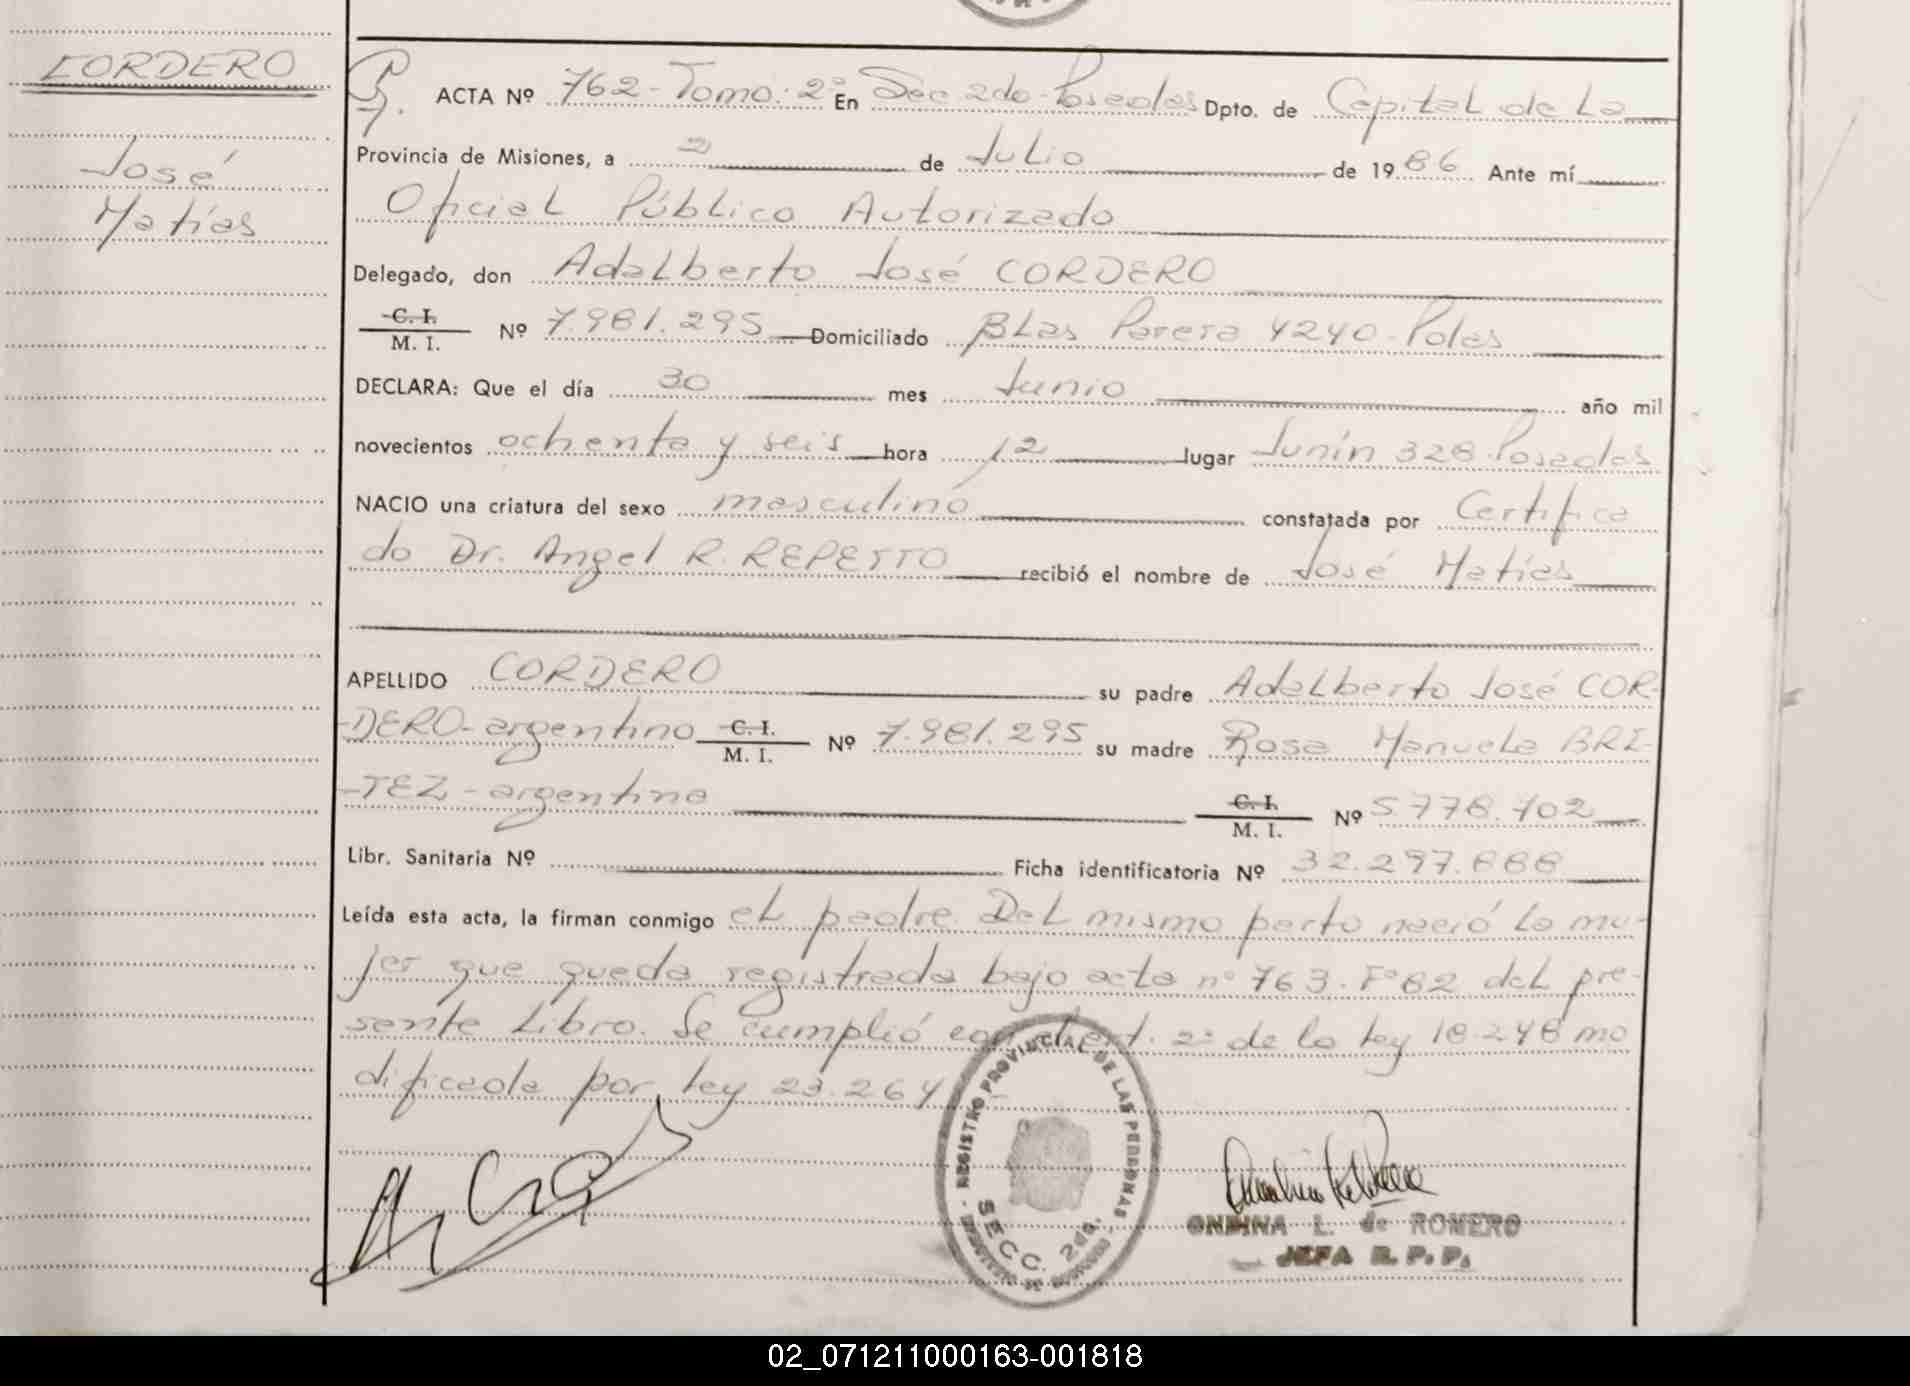 CORDERO
José
Matías
ACTA Nº 762 - Tomo: 2º En Sec 2da. Posadas Dpto. de Capital de La
Provincia de Misiones, a 2 de Julio de 1986 Ante mí
Oficial Público Autorizado
Delegado, don Adalberto José CORDERO
C. I.
M. I. Nº 7.981.295 Domiciliado BLas Parera 4240 - Pdas
DECLARA: Que el día 30 mes Junio año mil
novecientos ochenta y seis hora 12 lugar Junín 328. Posadas
NACIO una criatura del sexo masculino constatada por Certifica
do Dr. Angel R. REPETTO recibió el nombre de José Matías
APELLIDO CORDERO su padre Adalberto José COR-
-DERO - argentino C. I.
M. I. Nº 7.981.295 su madre Rosa Manuela BRI-
-TEZ - argentina C. I.
M. I. Nº 5.778.702
Libr. Sanitaria Nº Ficha identificatoria Nº 32.297.888
Leída esta acta, la firman conmigo el padre. Del mismo parto nació la mu-
jer que queda registrada bajo acta nº 763. Fº 82 del pre-
sente Libro. Se cumplió con el art. 2º de la ley 18.248 mo
dificada por ley 23.264
REGISTRO PROVINCIAL DE LAS PERSONAS
SECC. 2da.
ONDINA L. de ROMERO
JEFA R. P. P.
02_071211000163-001818